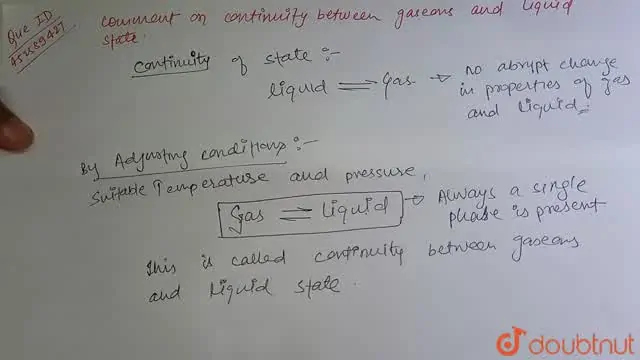 Que ID
452589427
comment on continuity between gaseous and liquid
state.
Continuity of state :-
liquid ⇌ gas → no abrupt change
in properties of gas
and liquid.
By Adjusting conditions :-
Suitable Temperature and pressure,
Gas ⇌ liquid → Always a single
phase is present
This is called continuity between gaseous
and liquid state.
doubtnut